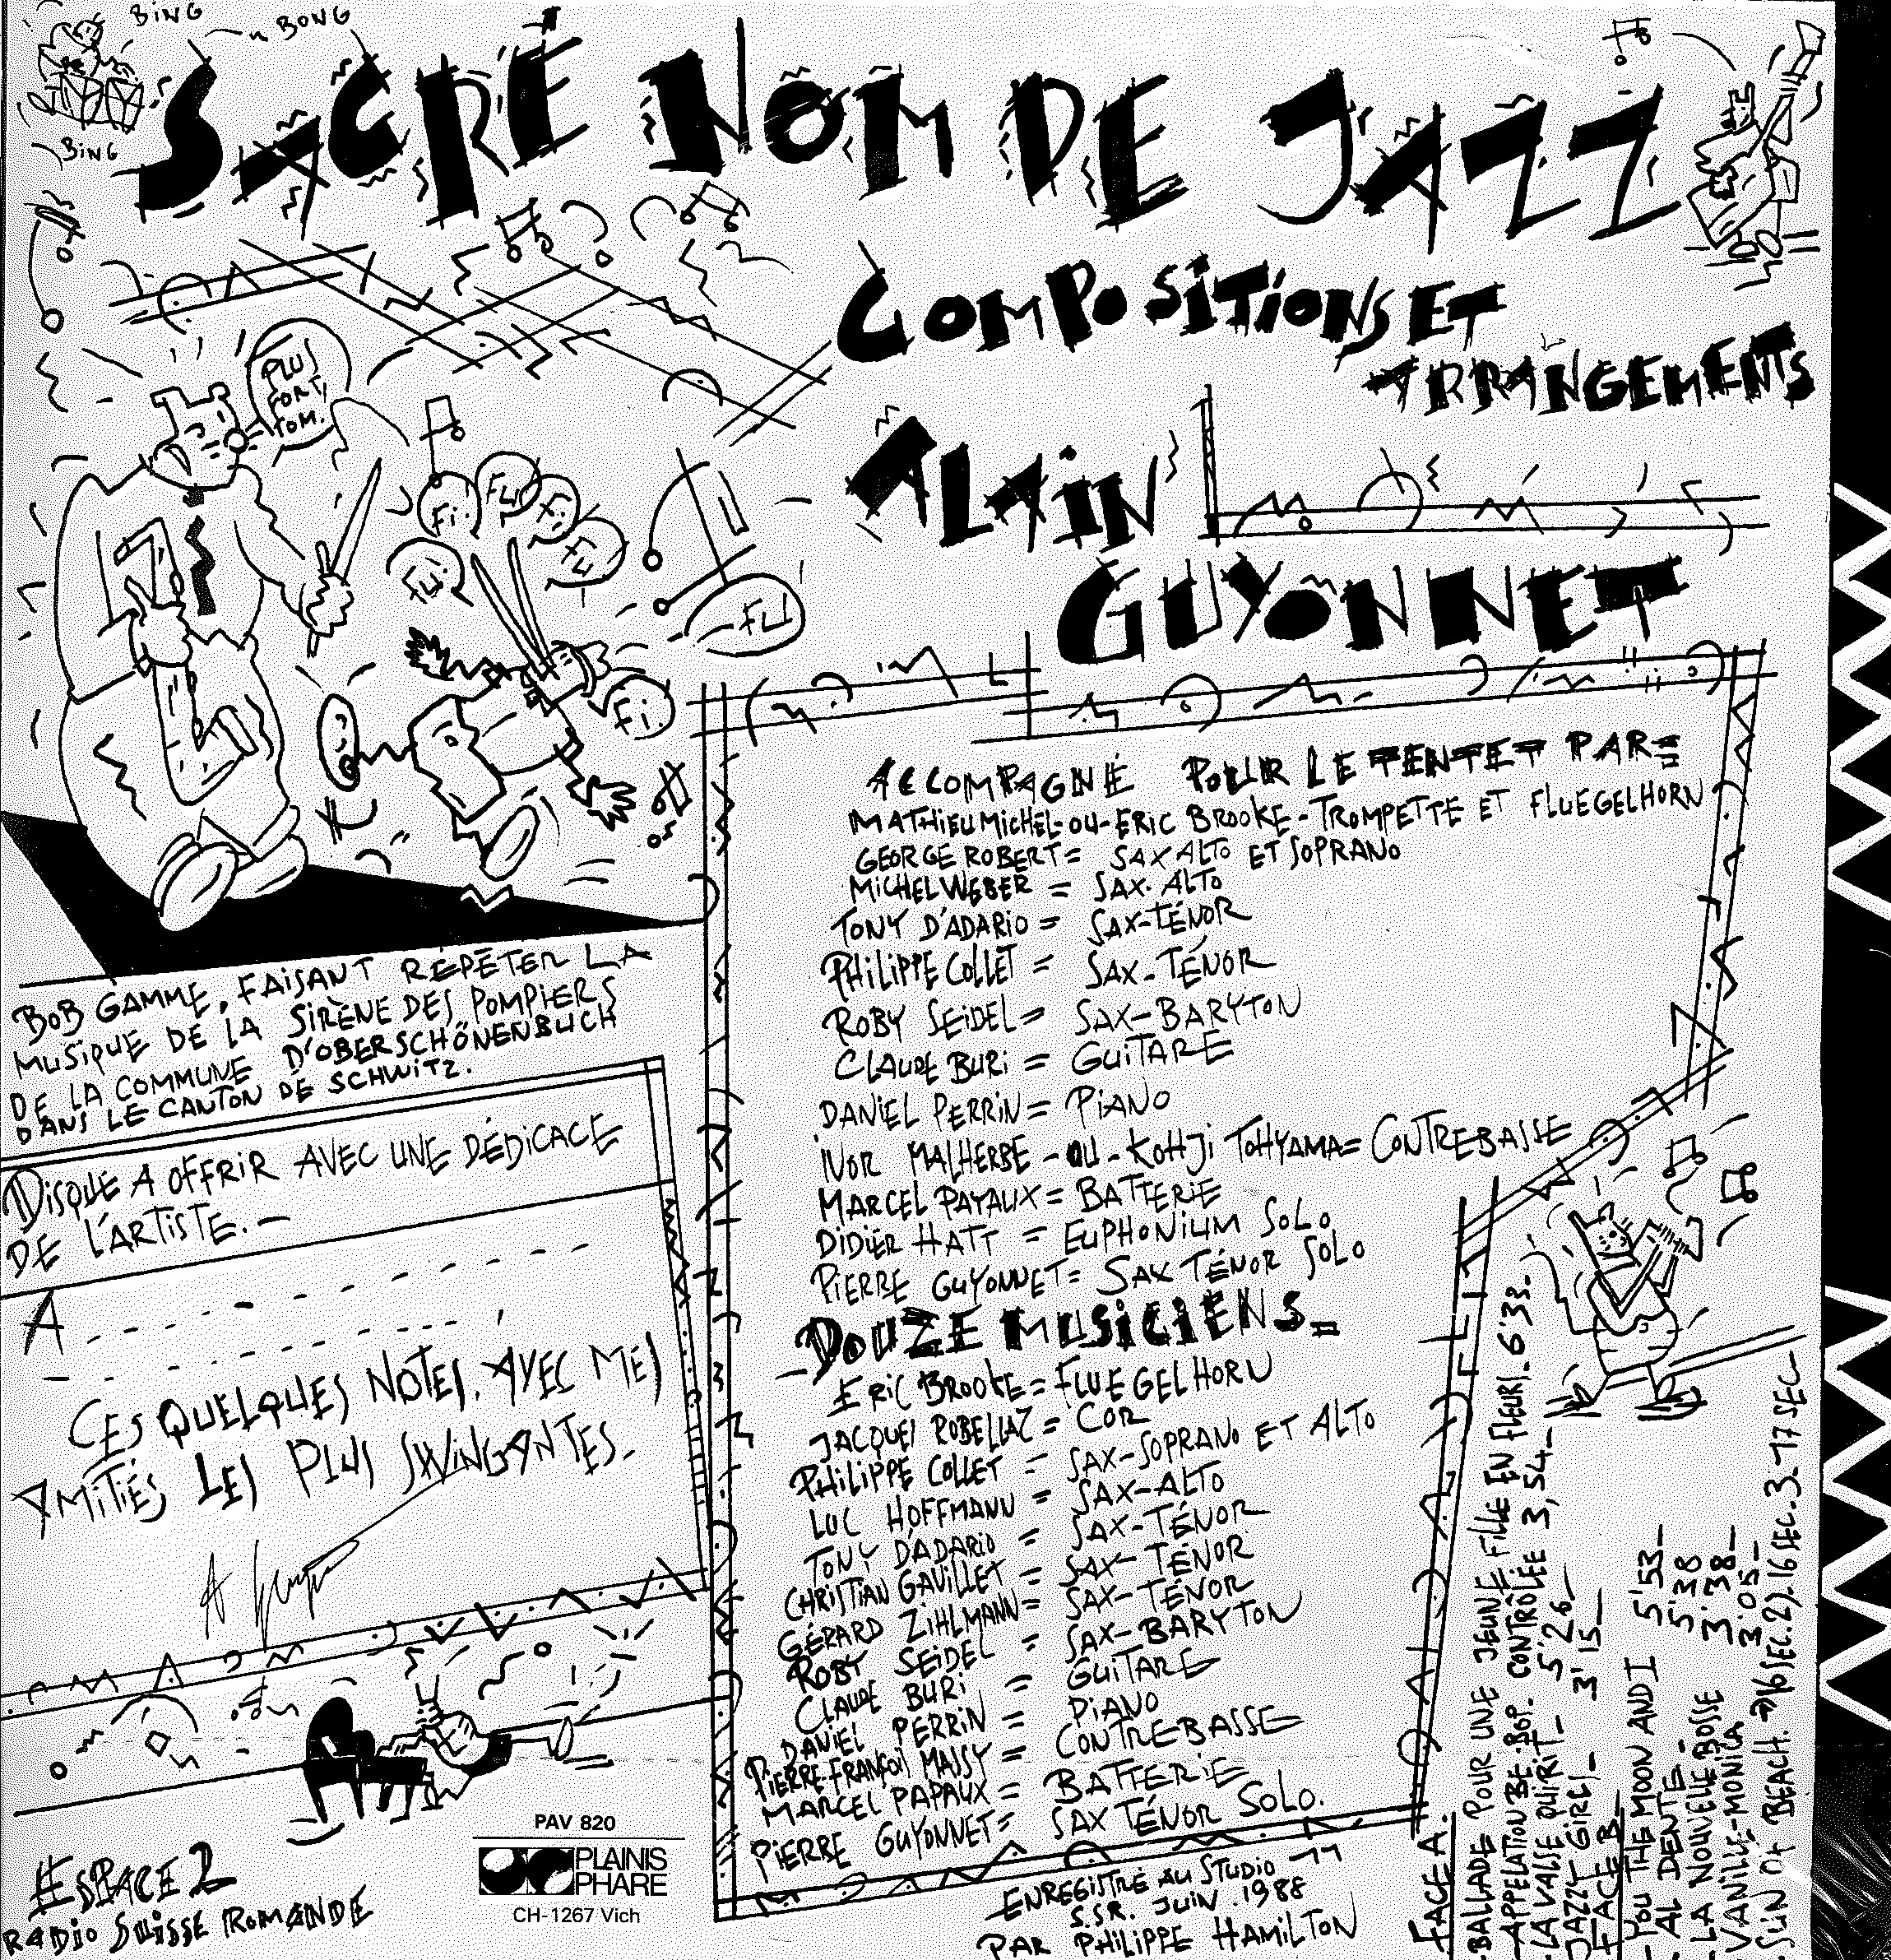 BING
BONG
BING
SACRÉ NOM DE JAZZ
COMPOSITIONS ET
ARRANGEMENTS
ALAIN
GUYONNET
PLUS
FORT,
TOM.
Fi.
FU
Fi.
Fi
FU.
FU
Fi.
ACCOMPAGNÉ POUR LE TENTET PAR=
MATHIEU MICHEL-OU-ERIC BROOKE-TROMPETTE ET FLUEGELHORN
GEORGE ROBERT= SAX ALTO ET SOPRANO
MICHEL WEBER = SAX-ALTO
TONY D'ADARIO = SAX-TÉNOR
PHILIPPE COLLET = SAX-TÉNOR
ROBY SEIDEL= SAX-BARYTON
CLAUDE BURI = GUITARE
DANIEL PERRIN= PIANO
IVOR MALHERBE -OU- KOHJI TOHYAMA= CONTREBASSE
MARCEL PAPAUX= BATTERIE
DIDIER HATT = EUPHONIUM SOLO
PIERRE GUYONNET= SAX TÉNOR SOLO
-DOUZE MUSICIENS=
ERIC BROOKE= FLUEGELHORN
JACQUES ROBELLAZ= COR
PHILIPPE COLLET = SAX-SOPRANO ET ALTO
LUC HOFFMANN = SAX-ALTO
TONY D'ADARIO = SAX-TÉNOR
CHRISTIAN GAVILLET = SAX-TÉNOR
GÉRARD ZIHLMANN= SAX-TÉNOR
ROBY SEIDEL = SAX-BARYTON
CLAUDE BURI = GUITARE
DANIEL PERRIN = PIANO
PIERRE-FRANÇOIS MASSY = CONTREBASSE
MARCEL PAPAUX = BATTERIE
PIERRE GUYONNET= SAX TÉNOR SOLO.
ENREGISTRÉ AU STUDIO
S.S.R. JUIN.1988
PAR PHILIPPE HAMILTON
BOB GAMME, FAISANT RÉPÉTER LA
MUSIQUE DE LA SIRÈNE DES POMPIERS
DE LA COMMUNE D'OBERSCHÖNENBUCH
DANS LE CANTON DE SCHWITZ.
DISQUE A OFFRIR AVEC UNE DÉDICACE
DE L'ARTISTE.-
A
CES QUELQUES NOTES, AVEC MES
AMITIÉS LES PLUS SWINGANTES-
ESPACE 2
RADIO SUISSE ROMANDE
PAV 820
PLAINIS
PHARE
CH-1267 Vich
FACE A.
-BALLADE POUR UNE JEUNE FILLE EN FLEURS. 6'33-
-APPELATION BE-BOP. CONTRÔLÉE 3,54-
-LA VALSE QUI RIT- 5'26-
JAZZY GIRL- 3'15-
FACE B-
-YOU THE MOON AND I 5'53-
-AL DENTE- 5'38
-LA NOUVELLE BOSSE 3'38-
-VANILLE-MONICA 3'05-